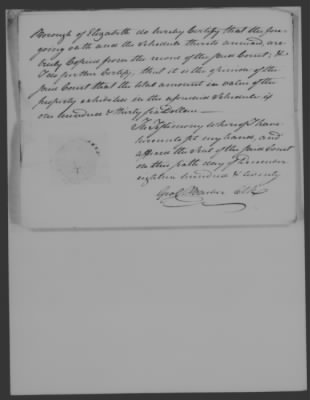 Borough of Elizabeth do hereby Certify that the fore-
going oath and the Schedule thereto annexed, are
truly Copied from the records of the said Court; &
I do further Certify, that it is the opinion of the
said Court that the total amount in value of the
property exhibited in the aforesaid Schedule is
one hundred & thirty six Dollars
In Testimony whereof I have
hereunto set my hand, and
affixed the Seal of the said Court
on this sixth day of December
eighteen hundred & twenty
Clk